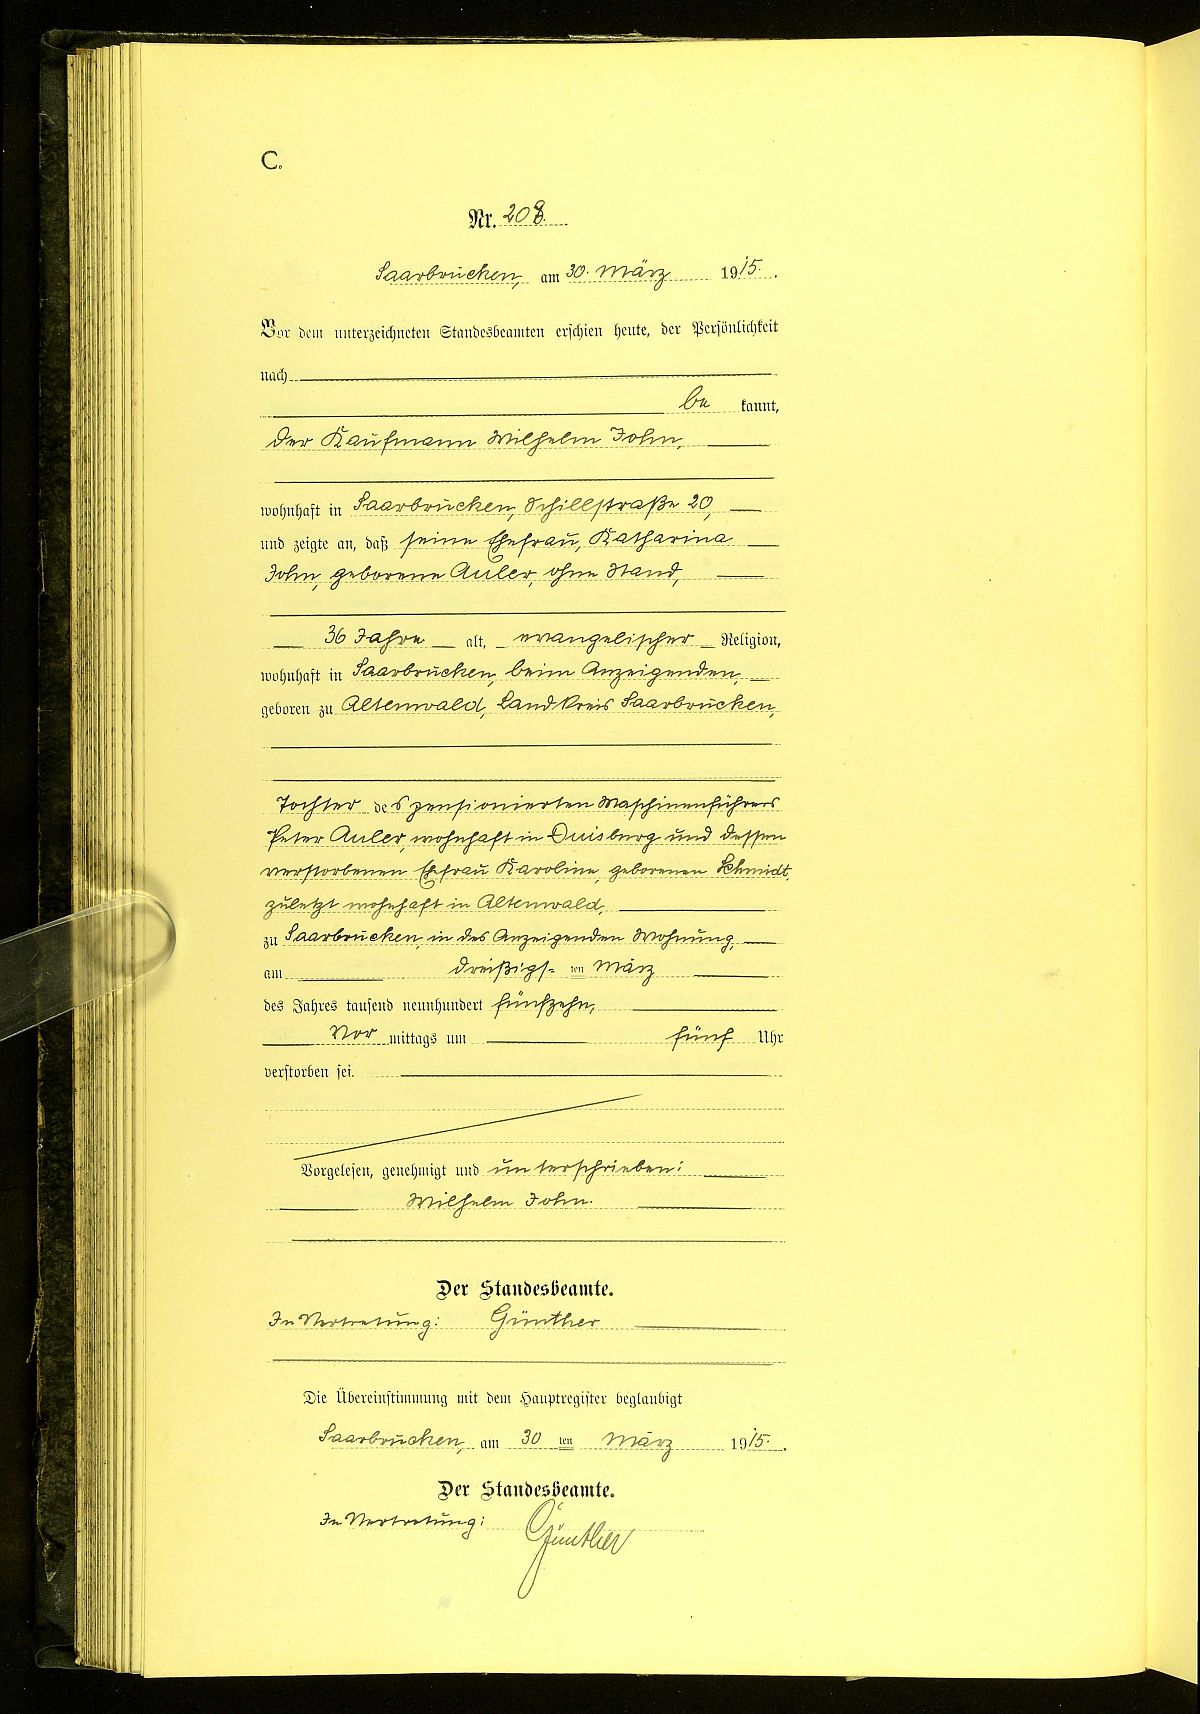 C.
Nr. 208.
Saarbrücken, am 30. März 1915.
Vor dem unterzeichneten Standesbeamten erschien heute, der Persönlichkeit
nach
be kannt,
der Kaufmann Wilhelm John,
wohnhaft in Saarbrücken, Schillstraße 20,
und zeigte an, daß seine Ehefrau, Katharina
John, geborene Auler, ohne Stand,
36 Jahre alt, evangelischer Religion,
wohnhaft in Saarbrücken, beim Anzeigenden,
geboren zu Altenwald, Landkreis Saarbrücken,
Tochter des pensionierten Maschinenführers
Peter Auler, wohnhaft in Duisburg und dessen
verstorbenen Ehefrau Karoline, geborenen Schmidt,
zuletzt wohnhaft in Altenwald,
zu Saarbrücken, in des Anzeigenden Wohnung,
am dreißigs- ten März
des Jahres tausend neunhundert fünfzehn,
Vor mittags um fünf Uhr
verstorben sei.
Vorgelesen, genehmigt und unterschrieben:
Wilhelm John.
Der Standesbeamte.
In Vertretung: Günther
Die Übereinstimmung mit dem Hauptregister beglaubigt
Saarbrücken, am 30 ten März 1915.
Der Standesbeamte.
In Vertretung: Günther